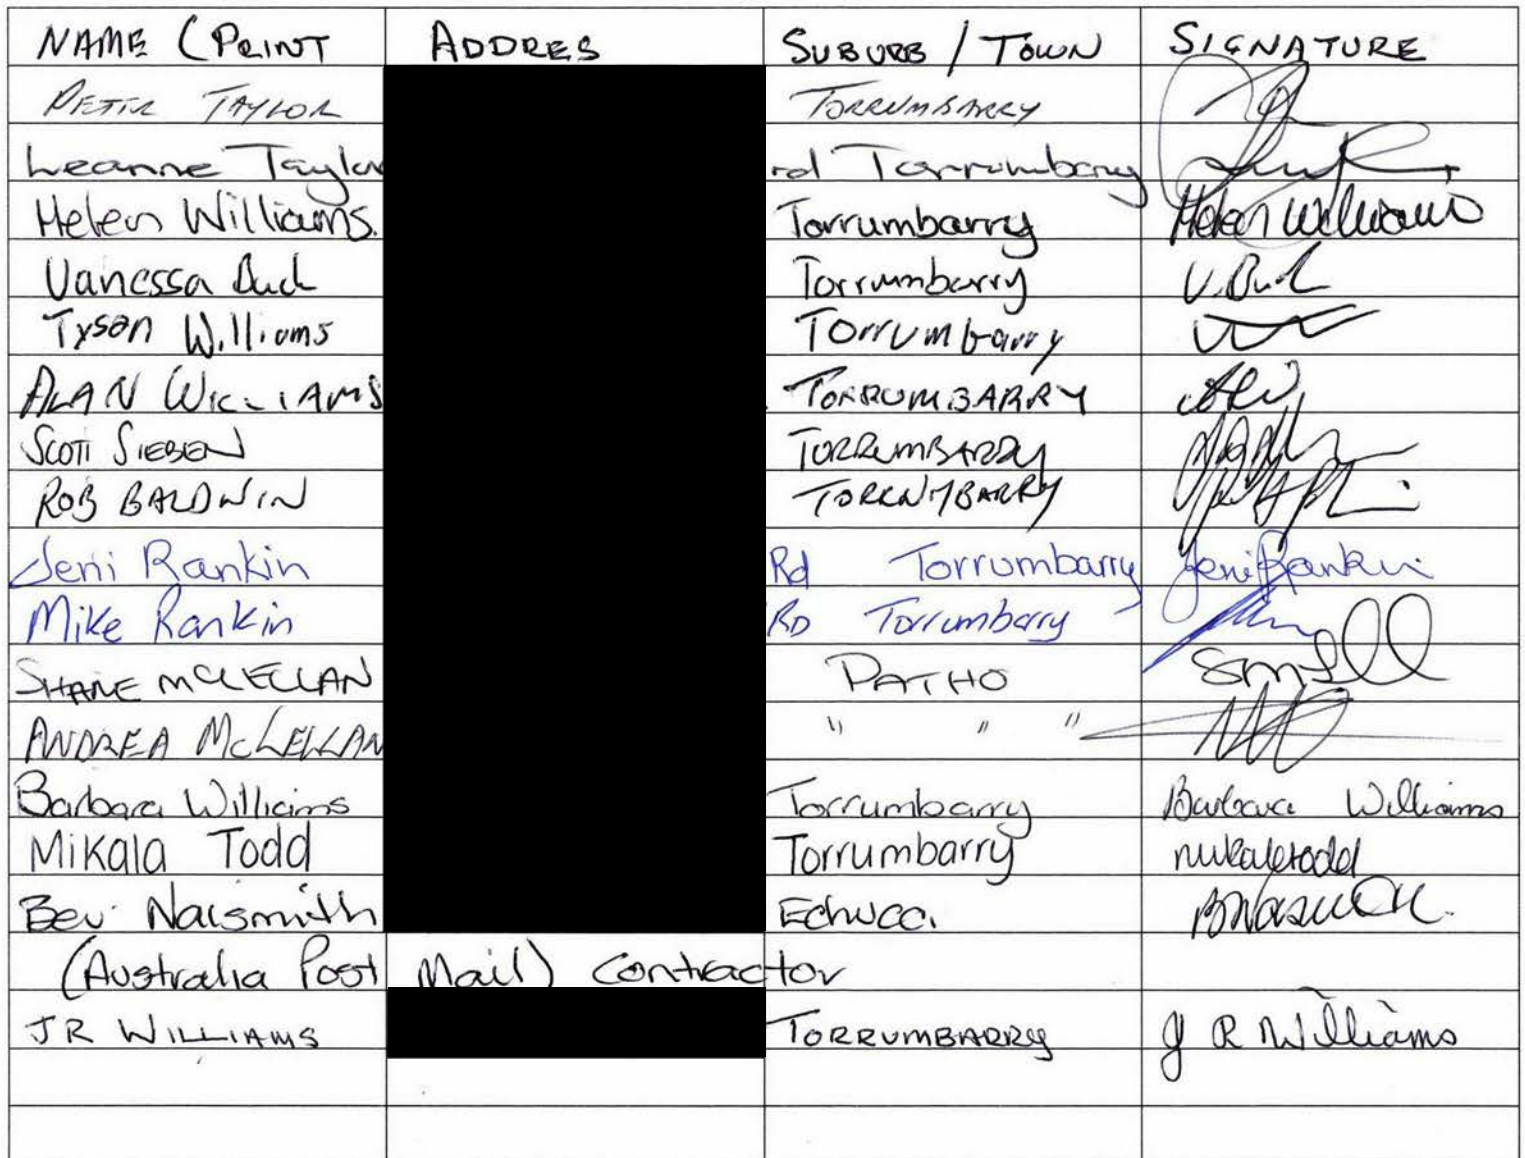 NAME (PRINT ADDRES SUBURB / TOWN SIGNATURE
PETER TAYLOR TORRUMBARRY
Leanne Taylor rd Torrumbarry
Helen Williams. Torrumbarry Helen Williams
Vanessa Torrumbarry
Tyson Williams Torrumbarry
ALAN WILLIAMS TORRUMBARRY
SCOTT SIEBEN TORRUMBARRY
ROB BALDWIN TORRUMBARRY
Jeni Rankin Rd Torrumbarry Jeni Rankin
Mike Rankin RD Torrumbarry
SHANE MCLELLAN PATHO
ANDREA McLELLAN " " "
Barbara Williams Torrumbarry Barbara Williams
Mikala Todd Torrumbarry mikalatodd
Bev Naismith Echuca.
(Australia Post Mail) Contractor
JR WILLIAMS TORRUMBARRY J R Williams